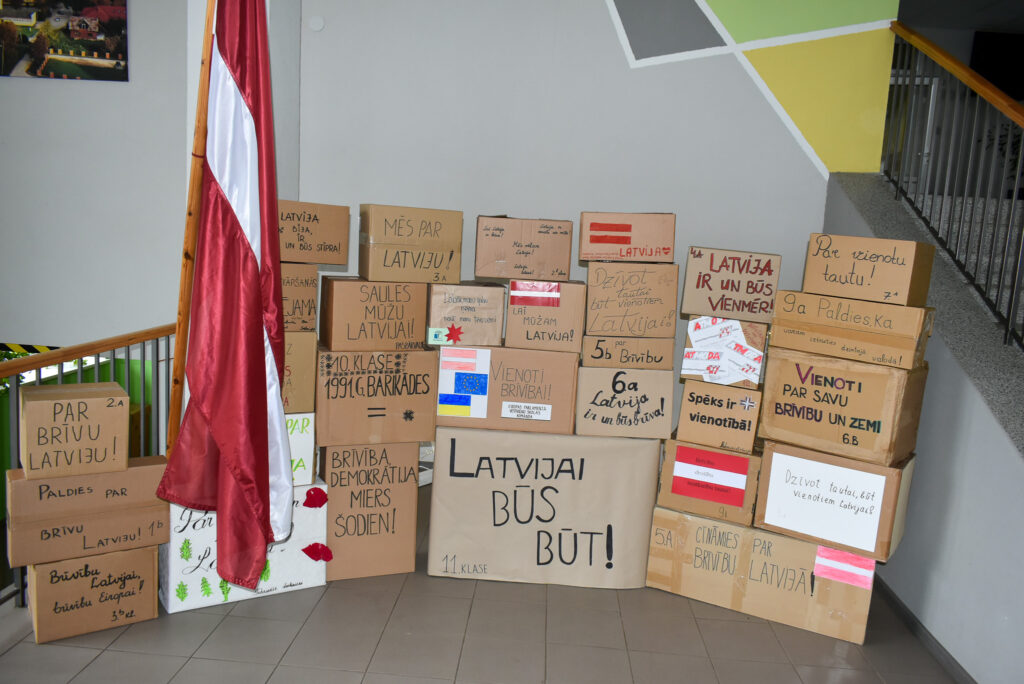 LATVIJA
BIJA,
IR
UN BŪS STIPRA!
MĒS PAR
LATVIJU!
3.A
Mēs mīlam
Latviju!
LATVIJA
LATVIJA
IR UN BŪS
VIENMĒR!
Par vienotu
tautu!
7.a
SAULES
MŪŽU
LATVIJAI!
LAI
MŪŽAM
LATVIJA!
Dzīvot
tautai
būt
vienotiem
Latvijai!
9a Paldies, ka
varam izteikties dzimtajā
valodā!
5b par
Brīvību
10. KLASE
1991.G. BARIKĀDES
=
BRĪVĪBA,
DEMOKRĀTIJA
MIERS
ŠODIEN!
VIENOTI
BRĪVĪBAI!
EIROPAS PARLAMENTA
VĒSTNIEKU SKOLAS
KOMANDA
6a
Latvija
ir un būs brīva!
Spēks ir
vienotībā!
VIENOTI
PAR SAVU
BRĪVĪBU UN ZEMI
6.B
2.A
PAR
BRĪVU
LATVIJU!
PALDIES PAR
BRĪVU LATVIJU! 1b
Brīvību Latvijai,
brīvību Eiropai!
3.b kl.
LATVIJAI
BŪS
BŪT!
11. KLASE
Dzīvot tautai, būt
vienotiem Latvijai!
5.A CĪNĀMIES PAR
BRĪVĪBU LATVIJĀ!